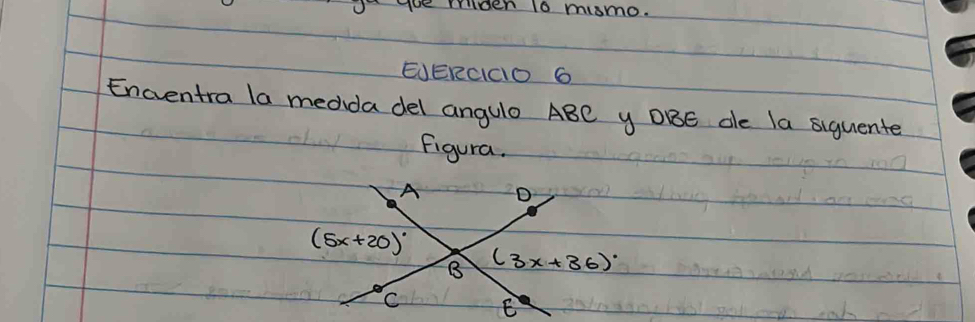 que miden lo mismo.
EJERCICIO 6
Encuentra la medida del angulo ABC y DBE de la siguente
figura.
A D
(5x+20)°
B (3x+36)°
C E